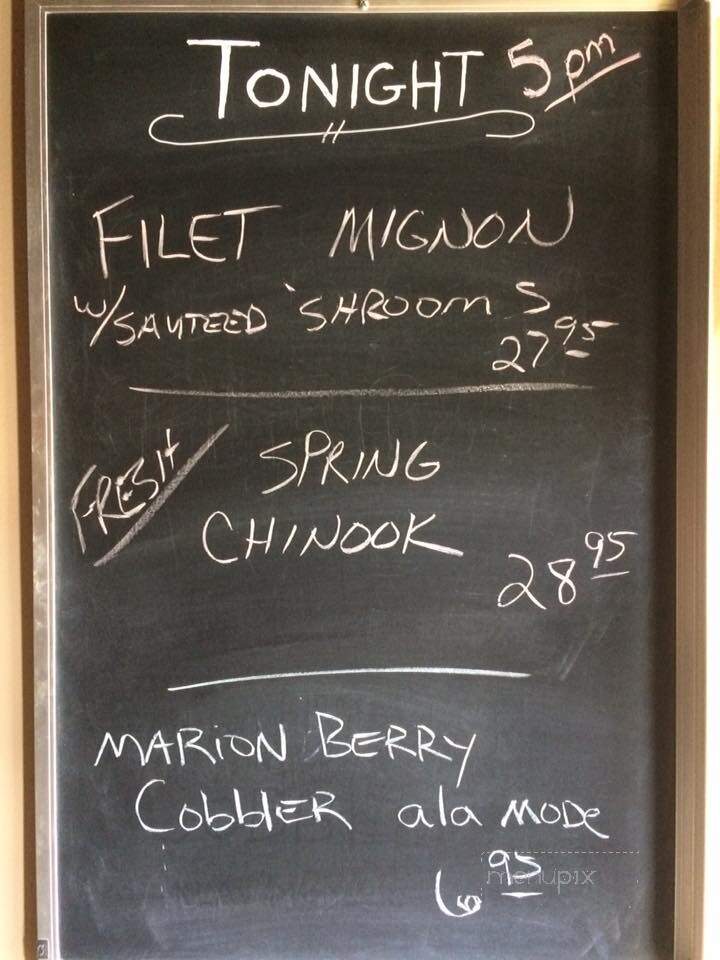 TONIGHT 5pm
FILET MIGNON
w/SAUTEED 'SHROOMS
27 95
FRESH SPRING
CHINOOK
28 95
MARION BERRY
CobblER ala MODe
6 95
menupix